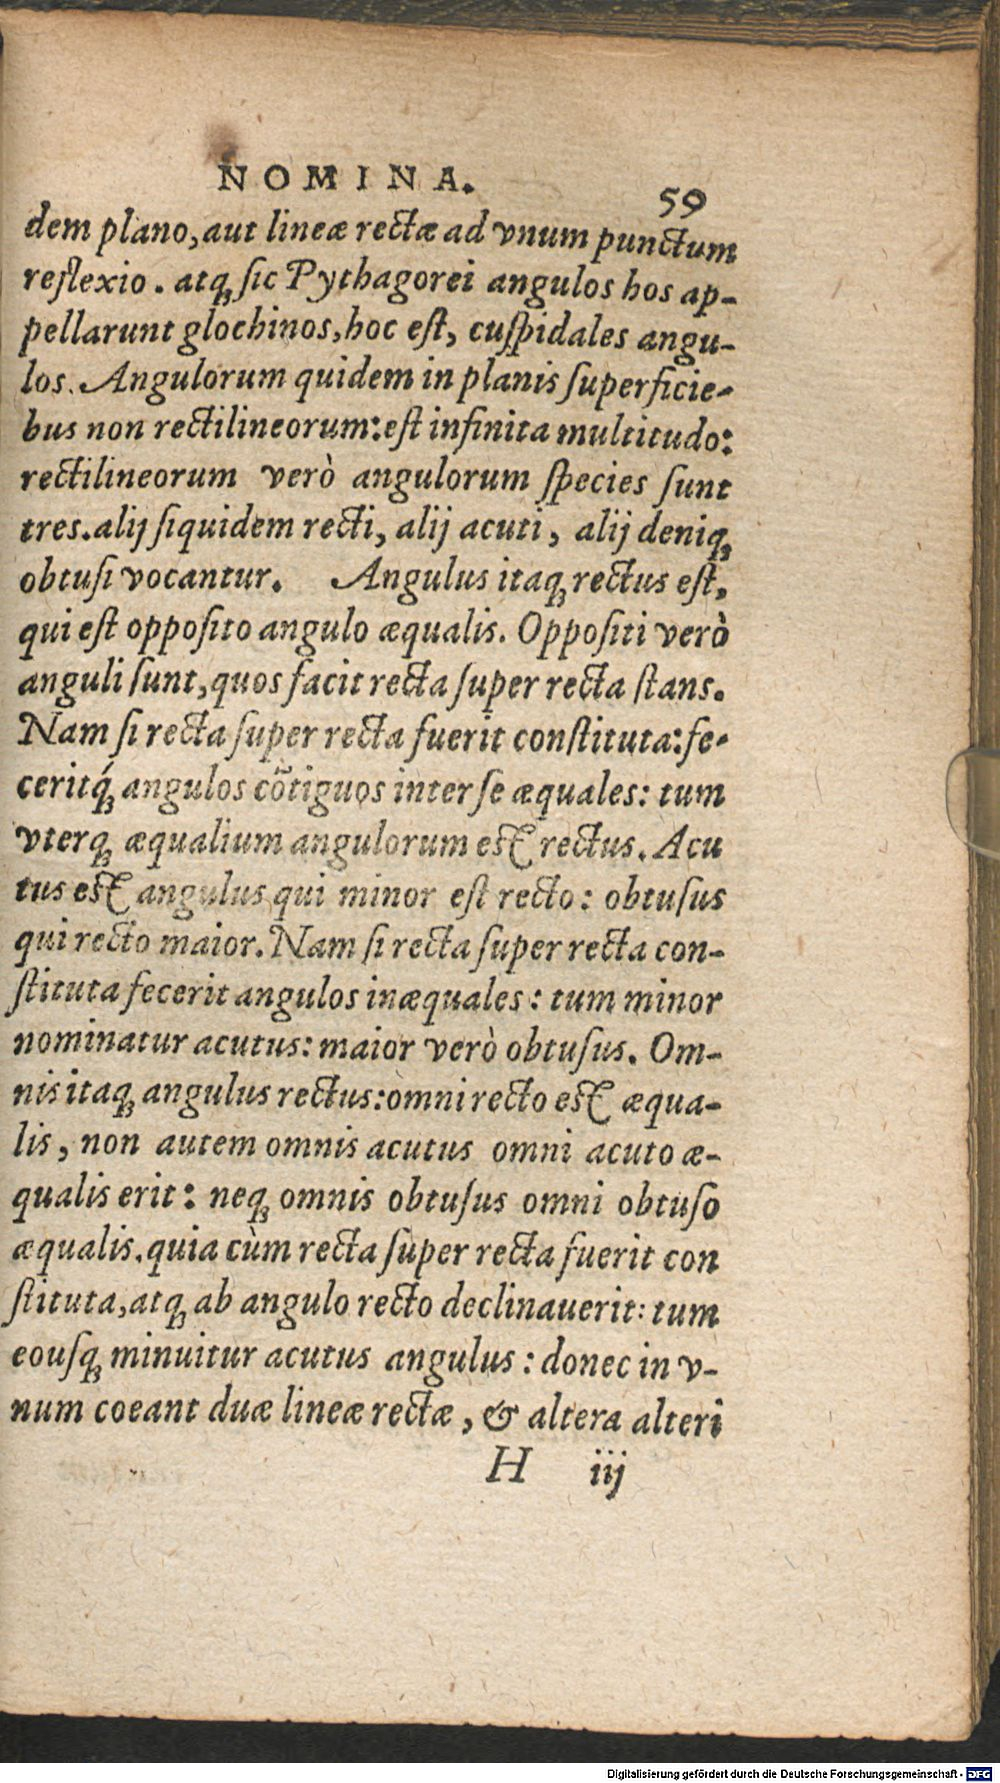 NOMINA. 59
dem plano, aut lineæ rectæ ad vnum punctum
reflexio. atq; sic Pythagorei angulos hos ap-
pellarunt glochinos, hoc est, cuspidales angu-
los. Angulorum quidem in planis superficie-
bus non rectilineorum: est infinita multitudo:
rectilineorum verò angulorum species sunt
tres. alij siquidem recti, alij acuti, alij deniq;
obtusi vocantur. Angulus itaq; rectus est,
qui est opposito angulo æqualis. Oppositi verò
anguli sunt, quos facit recta super recta stans.
Nam si recta super recta fuerit constituta: fe-
ceritq́; angulos cõtiguos inter se æquales: tum
vterq; æqualium angulorum est rectus. Acu
tus est angulus qui minor est recto: obtusus
qui recto maior. Nam si recta super recta con-
stituta fecerit angulos inæquales: tum minor
nominatur acutus: maior verò obtusus. Om-
nis itaq; angulus rectus: omni recto est æqua-
lis, non autem omnis acutus omni acuto æ-
qualis erit: neq; omnis obtusus omni obtuso
æqualis. quia cùm recta super recta fuerit con
stituta, atq; ab angulo recto declinauerit: tum
eousq; minuitur acutus angulus: donec in v-
num coeant duæ lineæ rectæ, & altera alteri
H iij
Digitalisierung gefördert durch die Deutsche Forschungsgemeinschaft - DFG